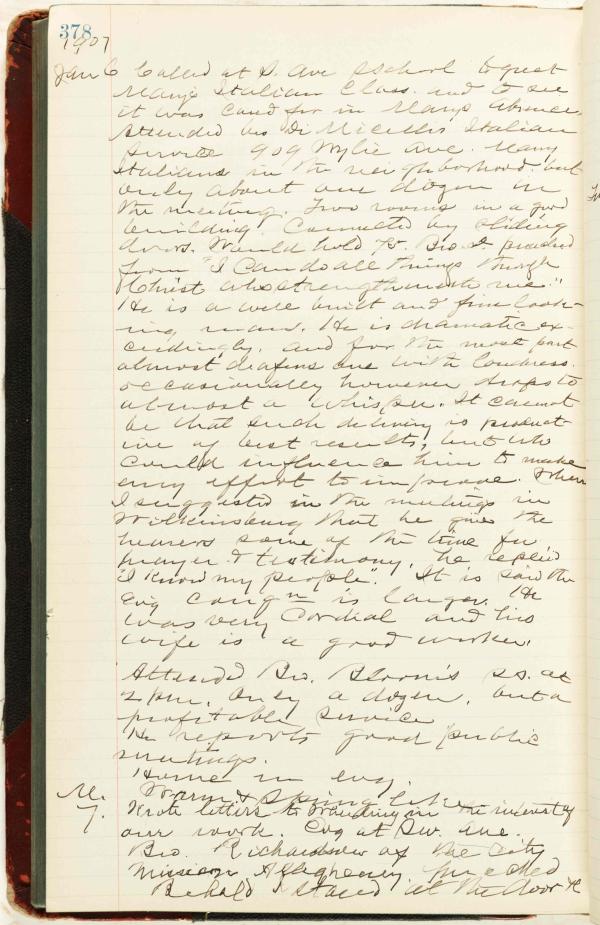 378
1907
Jan 6 Called at S. Ave S School to greet
Mary's Italian Class. and to see
it was cared for in Mary's absence.
Attended Bro Di Micelli's Italian
Service 909 Wylie Ave. Many
Italians in the neighborhood. but
only about one dozen in
the meeting. Two rooms in a good
building. Connected by sliding
doors. Would hold 75. Bro. D preached
from "I can do all things through
Christ who strengtheneth me."
He is a well built and fine look-
ing man. He is dramatic ex-
ceedingly. and for the most part
almost deafens one with loudness.
occasionally however drops to
almost a whisper. It cannot
be that such delivery is product-
ive of best results, but who
could influence him to make
any effort to improve. When
I suggested in the meetings in
Wilkinsburg that he give the
hearers some of the time for
prayer & testimony, he replied
"I know my people". It is said the
Evg congn is larger. He
was very Cordial and his
wife is a good worker.
Attended Bro. Bloom's S.S. at
2 pm. Only a dozen, but a
profitable service
He reports good public
meetings.
Home in evg.
Warm & Spring like
M. 7. Wrote letters to in the interest of
our work. Evg at Ave.
Bro. Richardson of the City
Mission Allegheny preached
Behold I stand at the door &c